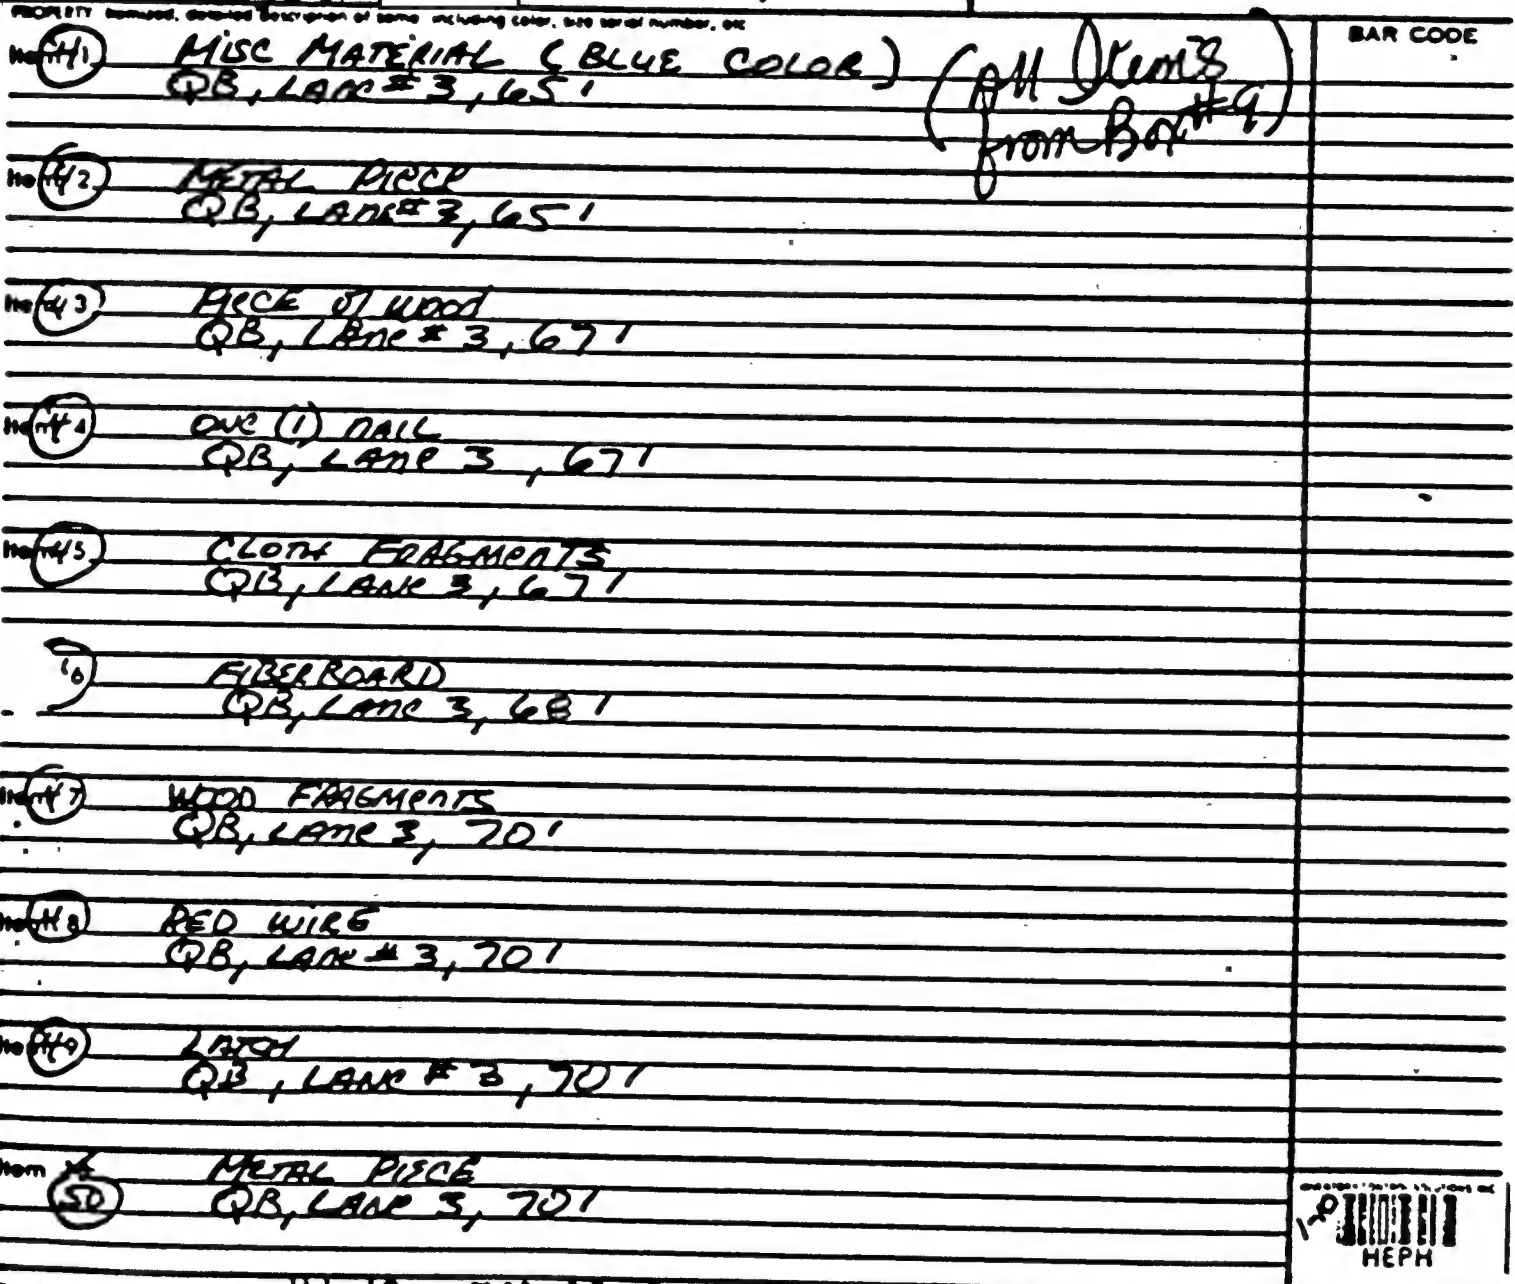 PROPERTY itemized, detailed description of same including color, size serial number, etc
BAR CODE
Item 41 MISC MATERIAL (BLUE COLOR)
QB, LANE #3, 65'
(All Items
from Box #9)
Item 42 METAL PIECE
QB, LANE #3, 65'
Item 43 PIECE of WOOD
QB, LANE #3, 67'
Item 44 ONE (1) NAIL
QB, LANE 3, 67'
Item 45 CLOTH FRAGMENTS
QB, LANE 3, 67'
FIBERBOARD
QB, LANE 3, 68'
Item 47 WOOD FRAGMENTS
QB, LANE 3, 70'
Item 48 RED WIRE
QB, LANE #3, 70'
Item 49 LATCH
QB, LANE #3, 70'
Item METAL PIECE
50 QB, LANE 3, 70'
HEPH